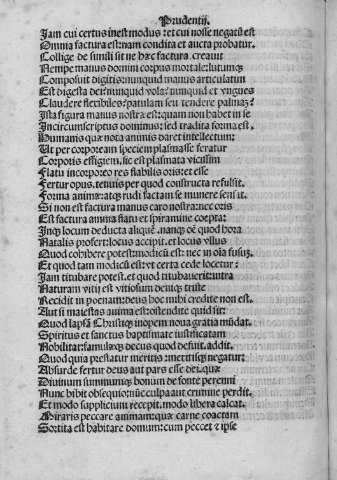 Prudentij.
Jam cui certus inest modus: et cui nosse negatū est
Omnia factura est: nam condita et aucta probatur.
Collige de simili sit ne hæc factura. creauit
Nempe manus domini corpus mortale: lutumqȝ
Composuit digitis: nunquid manus articulatim
Est digesta dei? nunquid vola? nunquid et vngues
Claudere flexibiles? patulam seu tendere palmaȝ?
Ista figura manus nostræ est: quam non habet in se
Incircumscriptus dominus: sed tradita forma est.
Humanis quæ nota animis daret intellectum:
Ut per corpoream speciem plasmasse feratur
Corporis effigiem, sic est plasmata vicissim
Flatu incorporeo res flabilis oris: et esse
Fertur opus. tenuis per quod constructa refulsit.
Forma animæ: atqȝ rudi factam se munere sensit.
Si non est factura manus caro nostra: nec oris
Est factura anima flatu et spiramine coepta:
Inqȝ locum deducta aliquē. nanqȝ oē quod hora
Natalis profert: locus accipit. et locus vllus
Quod cohibere potest: modicū est: nec in oīa fusuȝ.
Et quod tam modicū est: vt certa sede locetur:
Jam titubare potest. et quod titubauerit: intra
Naturam vitij est vitiosum deniqȝ triste
Recidit in poenam: deus hoc mihi credite non est.
Aut si maiestas anima est: ostendite quid sit:
Quod lapsā Christusqȝ inopem noua gratia mūdat.
Spiritus et sanctus baptismate iustificatam
Nobilitat: famulæqȝ decus quod defuit. addit.
Quod quia prestatur meritis: meritisqȝ negatur:
Absurde fertur deus aut pars esse dei. quæ
Diuinum summumqȝ bonum de fonte perenni
Nunc bibit obsequio: nūc culpa aut crimine perdit.
Et modo supplicium recepit. modo libera calcat.
Miraris peccare animam: quæ carne coactam
Sortita est habitare domum: cum peccet et ipse